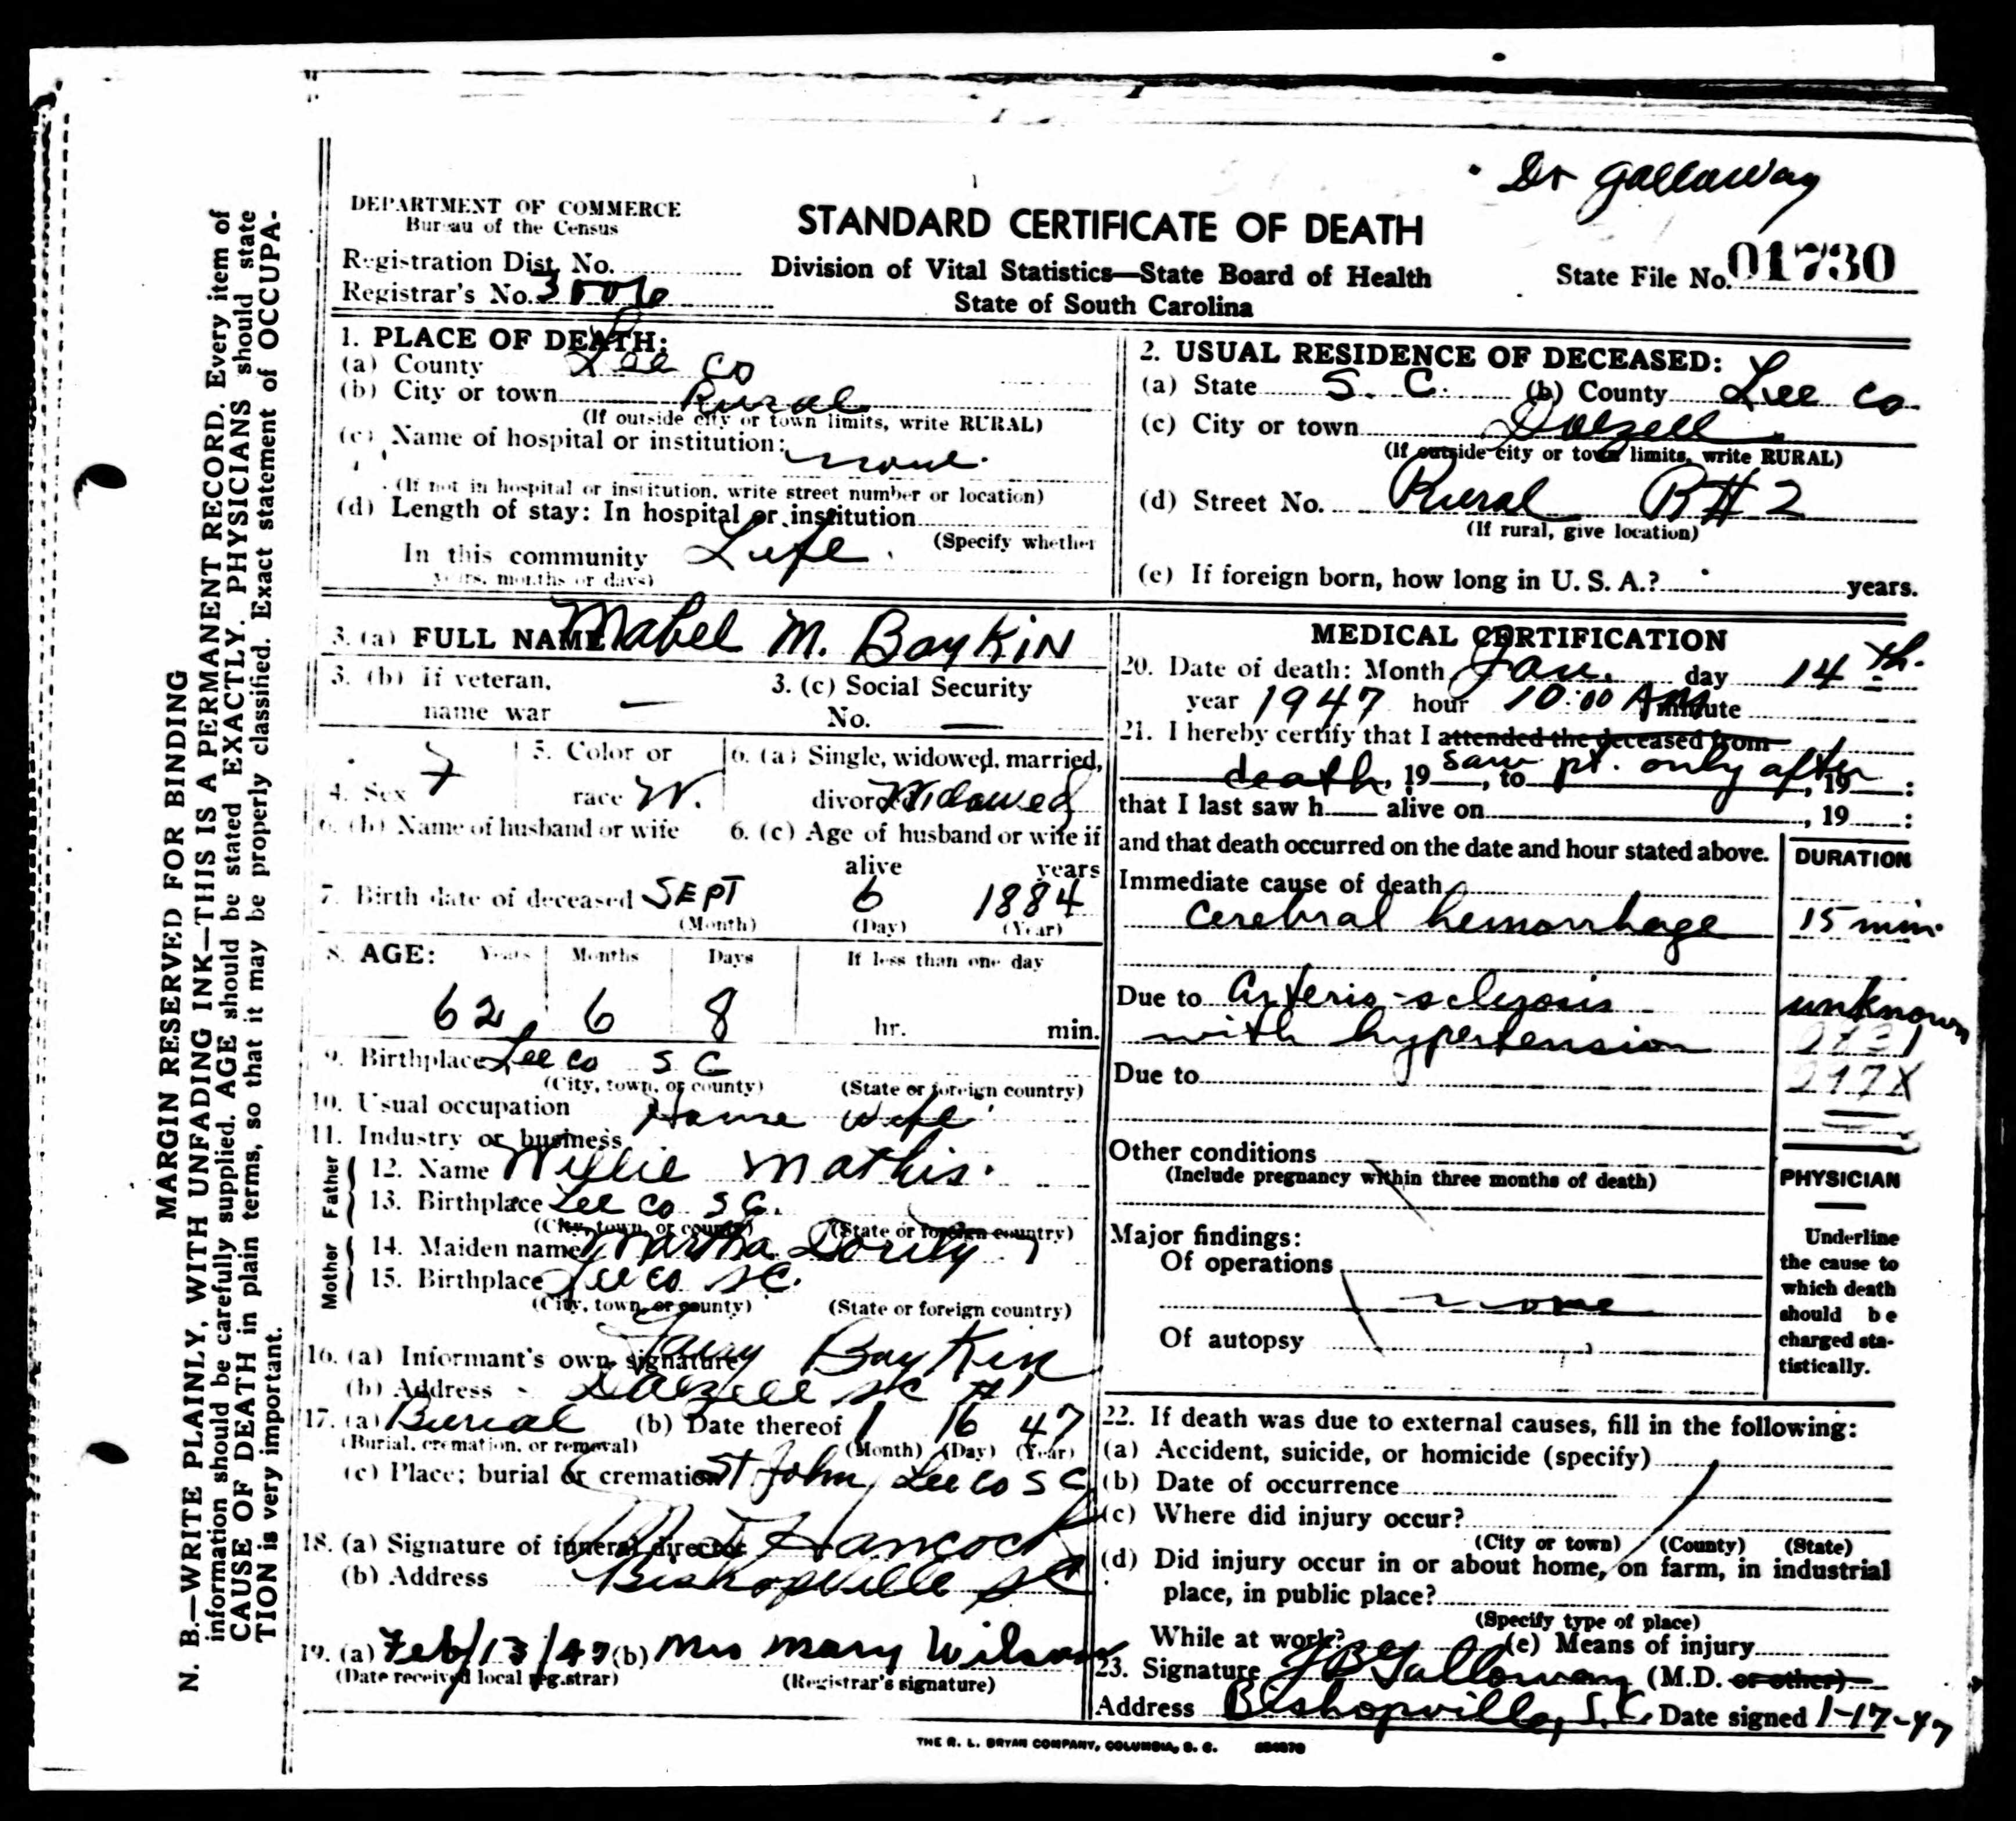 Dr Galloway
DEPARTMENT OF COMMERCE
Bureau of the Census
STANDARD CERTIFICATE OF DEATH
Division of Vital Statistics—State Board of Health
State of South Carolina
Registration Dist. No.
Registrar's No.
State File No. 01730
MARGIN RESERVED FOR BINDING
N. B.—WRITE PLAINLY, WITH UNFADING INK—THIS IS A PERMANENT RECORD. Every item of
information should be carefully supplied. AGE should be stated EXACTLY. PHYSICIANS should state
CAUSE OF DEATH in plain terms, so that it may be properly classified. Exact statement of OCCUPA-
TION is very important.
1. PLACE OF DEATH:
(a) County Lee Co
(b) City or town Rural
(If outside city or town limits, write RURAL)
(c) Name of hospital or institution:
none
(If not in hospital or institution, write street number or location)
(d) Length of stay: In hospital or institution
(Specify whether
In this community Life
years, months or days)
2. USUAL RESIDENCE OF DECEASED:
(a) State S. C. (b) County Lee Co
(c) City or town Dalzell
(If outside city or town limits, write RURAL)
(d) Street No. Rural R#2
(If rural, give location)
(e) If foreign born, how long in U. S. A.? years.
3. (a) FULL NAME Mabel M. Boykin
3. (b) if veteran, 3. (c) Social Security
name war — No. —
4. Sex F 5. Color or race W. 6. (a) Single, widowed, married,
divorced Widowed
6. (b) Name of husband or wife 6. (c) Age of husband or wife if
alive years
7. Birth date of deceased SEPT 6 1884
(Month) (Day) (Year)
8. AGE: Years Months Days If less than one day
62 6 8 hr. min.
9. Birthplace Lee Co S C
(City, town, or county) (State or foreign country)
10. Usual occupation House wife
11. Industry or business
Father
12. Name Willie Mathis
13. Birthplace Lee Co S C.
(City, town, or county) (State or foreign country)
Mother
14. Maiden name Martha
15. Birthplace Lee Co SC.
(City, town, or county) (State or foreign country)
16. (a) Informant's own signature Boykin
(b) Address Dalzell SC #1
17. (a) Burial (b) Date thereof 1 16 47
(Burial, cremation, or removal) (Month) (Day) (Year)
(c) Place; burial or cremation St John Lee Co S C
18. (a) Signature of funeral director Hancock
(b) Address Bishopville SC
19. (a) Feb/13/47 (b) Mrs Mary Wilson
(Date received local registrar) (Registrar's signature)
MEDICAL CERTIFICATION
20. Date of death: Month Jan. day 14th.
year 1947 hour 10:00 AM minute
21. I hereby certify that I attended the deceased from
death, 19 saw, to pt. only after, 19 :
that I last saw h alive on , 19 :
and that death occurred on the date and hour stated above. DURATION
Immediate cause of death
cerebral hemorrhage 15 min.
Due to arterio-sclerosis unknown
with hypertension
Due to
Other conditions
(Include pregnancy within three months of death)
Major findings:
Of operations
none
Of autopsy
PHYSICIAN
Underline
the cause to
which death
should be
charged sta-
tistically.
22. If death was due to external causes, fill in the following:
(a) Accident, suicide, or homicide (specify)
(b) Date of occurrence
(c) Where did injury occur?
(City or town) (County) (State)
(d) Did injury occur in or about home, on farm, in industrial
place, in public place?
(Specify type of place)
While at work? (e) Means of injury
23. Signature Galloway (M.D. or other)
Address Bishopville, S. C. Date signed 1-17-47
THE R. L. BRYAN COMPANY, COLUMBIA, S. C.